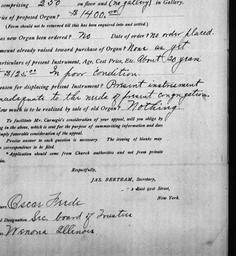 comprising 250 on floor and (no gallery) in Gallery.
Price of proposed Organ? $1400.00
(Form should not be returned till this has been enquired into and settled.)
new Organ been ordered? No Date of order? No order placed.
amount already raised toward purchase of Organ? None as yet
Particulars of present Instrument, Age, Cost Price, Etc. About 20 years
$125.00 In poor condition.
Reason for displacing present Instrument? Present instrument
inadequate to the needs of present congregation.
How much is to be realized by sale of old Organ? Nothing.
To facilitate Mr. Carnegie's consideration of your appeal, will you oblige by
in the above, which is sent for the purpose of summarizing information and due
favorable consideration of the appeal.
Precise answer to each question is necessary. The issuing of blanks may
correspondence to be filed.
Application should come from Church authorities and not from private
Respectfully,
JAS. BERTRAM, Secretary,
2 East 91st Street,
New York.
Oscar
Designation Sec. board of Trustees
Wenona Illinois